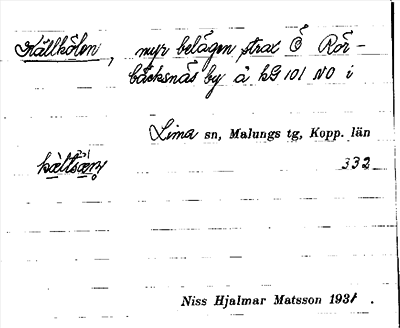 Källkölen, myr belägen strax Ö Rör-
bäcksnäs by å kG 101 NO i
Lima sn, Malungs tg, Kopp. län
332
Niss Hjalmar Matsson 1931.